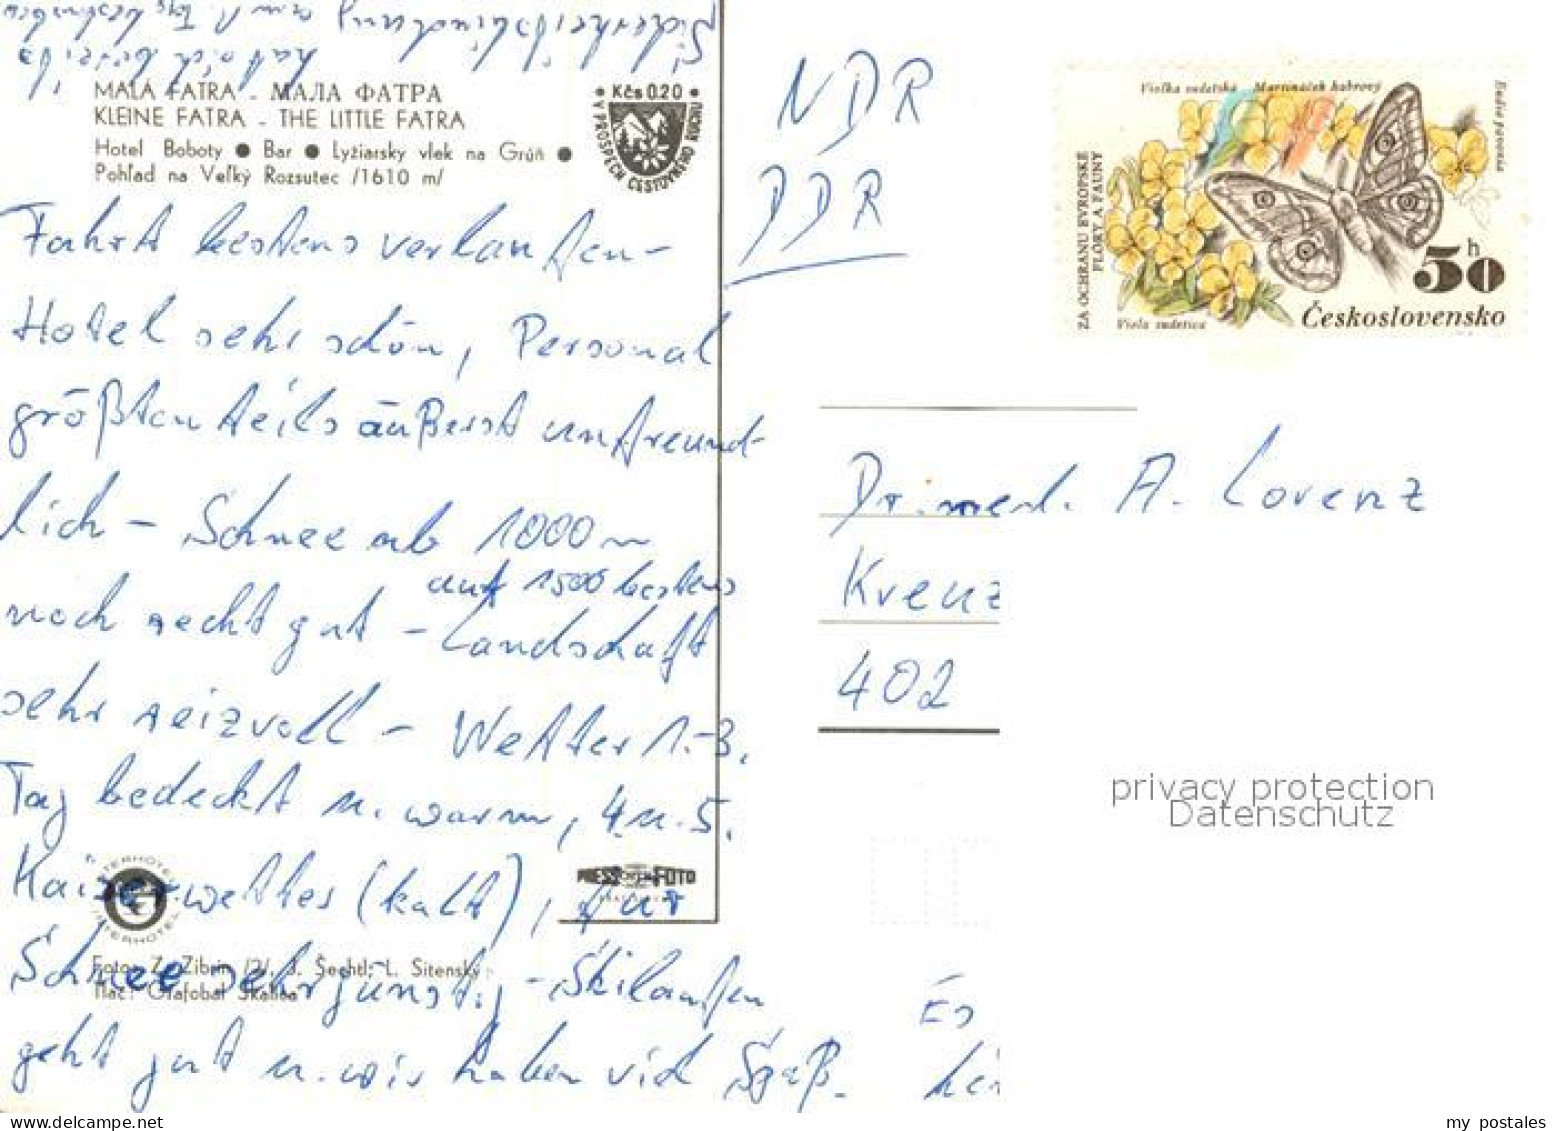 MALÁ FATRA - МАЛА ФАТРА
KLEINE FATRA - THE LITTLE FATRA
Hotel Boboty ● Bar ● Lyžiarsky vlek na Grúň ●
Pohľad na Veľký Rozsutec /1610 m/
• Kčs 0.20 •
V PROSPECH CESTOVNÉHO RUCHU
Fahrt bestens verlaufen –
Hotel sehr schön, Personal
größtenteils äußerst unfreund-
lich – Schnee ab 1000 m
auf 1500 bestens
noch recht gut – Landschaft
sehr reizvoll – Wetter 1.-3.
Tag bedeckt u. warm, 4. u. 5.
Kaiserwetter (kalt), für
Schnee sehr günstig – Skilaufen
geht gut u. wir haben viel Spaß.
INTERHOTEL
INTERHOTEL
PRESSFOTO
Foto: Z. Zibrin /2/, J. Šechtl, L. Sitenský
Tlač: Grafobal Skalica
NDR
DDR
Violka sudetská Martináček habrový
ZA OCHRANU EVROPSKÉ
FLÓRY A FAUNY
Viola sudetica
Eudia pavonia
50 h
Československo
Dr. med. A. Lorenz
Kreuz
402
Es
privacy protection
Datenschutz
my postales